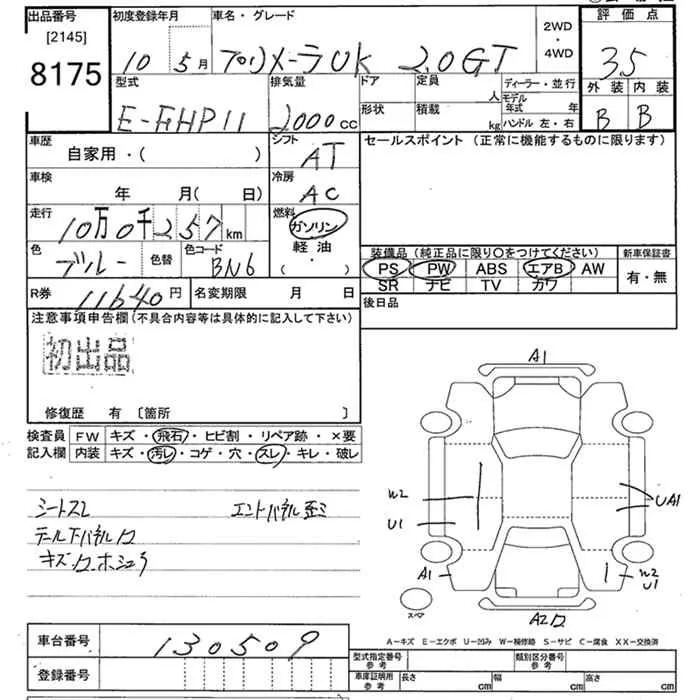 出品番号
[2145]
8175
初度登録年月
10 5月
車名・グレード
プリメーラUK 2.0GT
2WD
・
4WD
評価点
3.5
外装 内装
B B
型式
E-FHP11
排気量
2000cc
ドア
形状
定員 人
積載 kg
ディーラー・並行
モデル年式 年
ハンドル 左・右
車歴
自家用・( )
シフト
AT
セールスポイント (正常に機能するものに限ります)
車検
年 月( 日)
冷房
AC
走行
10万0千257km
燃料
ガソリン
軽油・
( )
色
ブルー
色替
色コード
BN6
装備品 (純正品に限り〇をつけてください)
PS PW ABS エアB AW
SR ナビ TV カワ
新車保証書
有・無
R券 11640円
名変期限 月 日
後日品
注意事項申告欄(不具合内容等は具体的に記入して下さい)
初出品
修復歴 有 〔箇所 〕
検査員
記入欄
FW キズ・飛石・ヒビ割・リペア跡・×要
内装 キズ・汚レ・コゲ・穴・スレ・キレ・破レ
シートスレ
エンドパネル歪ミ
キズ
A1
W2
U1
UA1
A1
W2
U1
スペア
A2
A-キズ E-エクボ U-凹み W-補修跡 S-サビ C-腐食 XX-交換済
車台番号
130509
登録番号
型式指定番号
参考
類別区分番号
参考
車庫証明用
参考
長さ cm
幅 cm
高さ cm